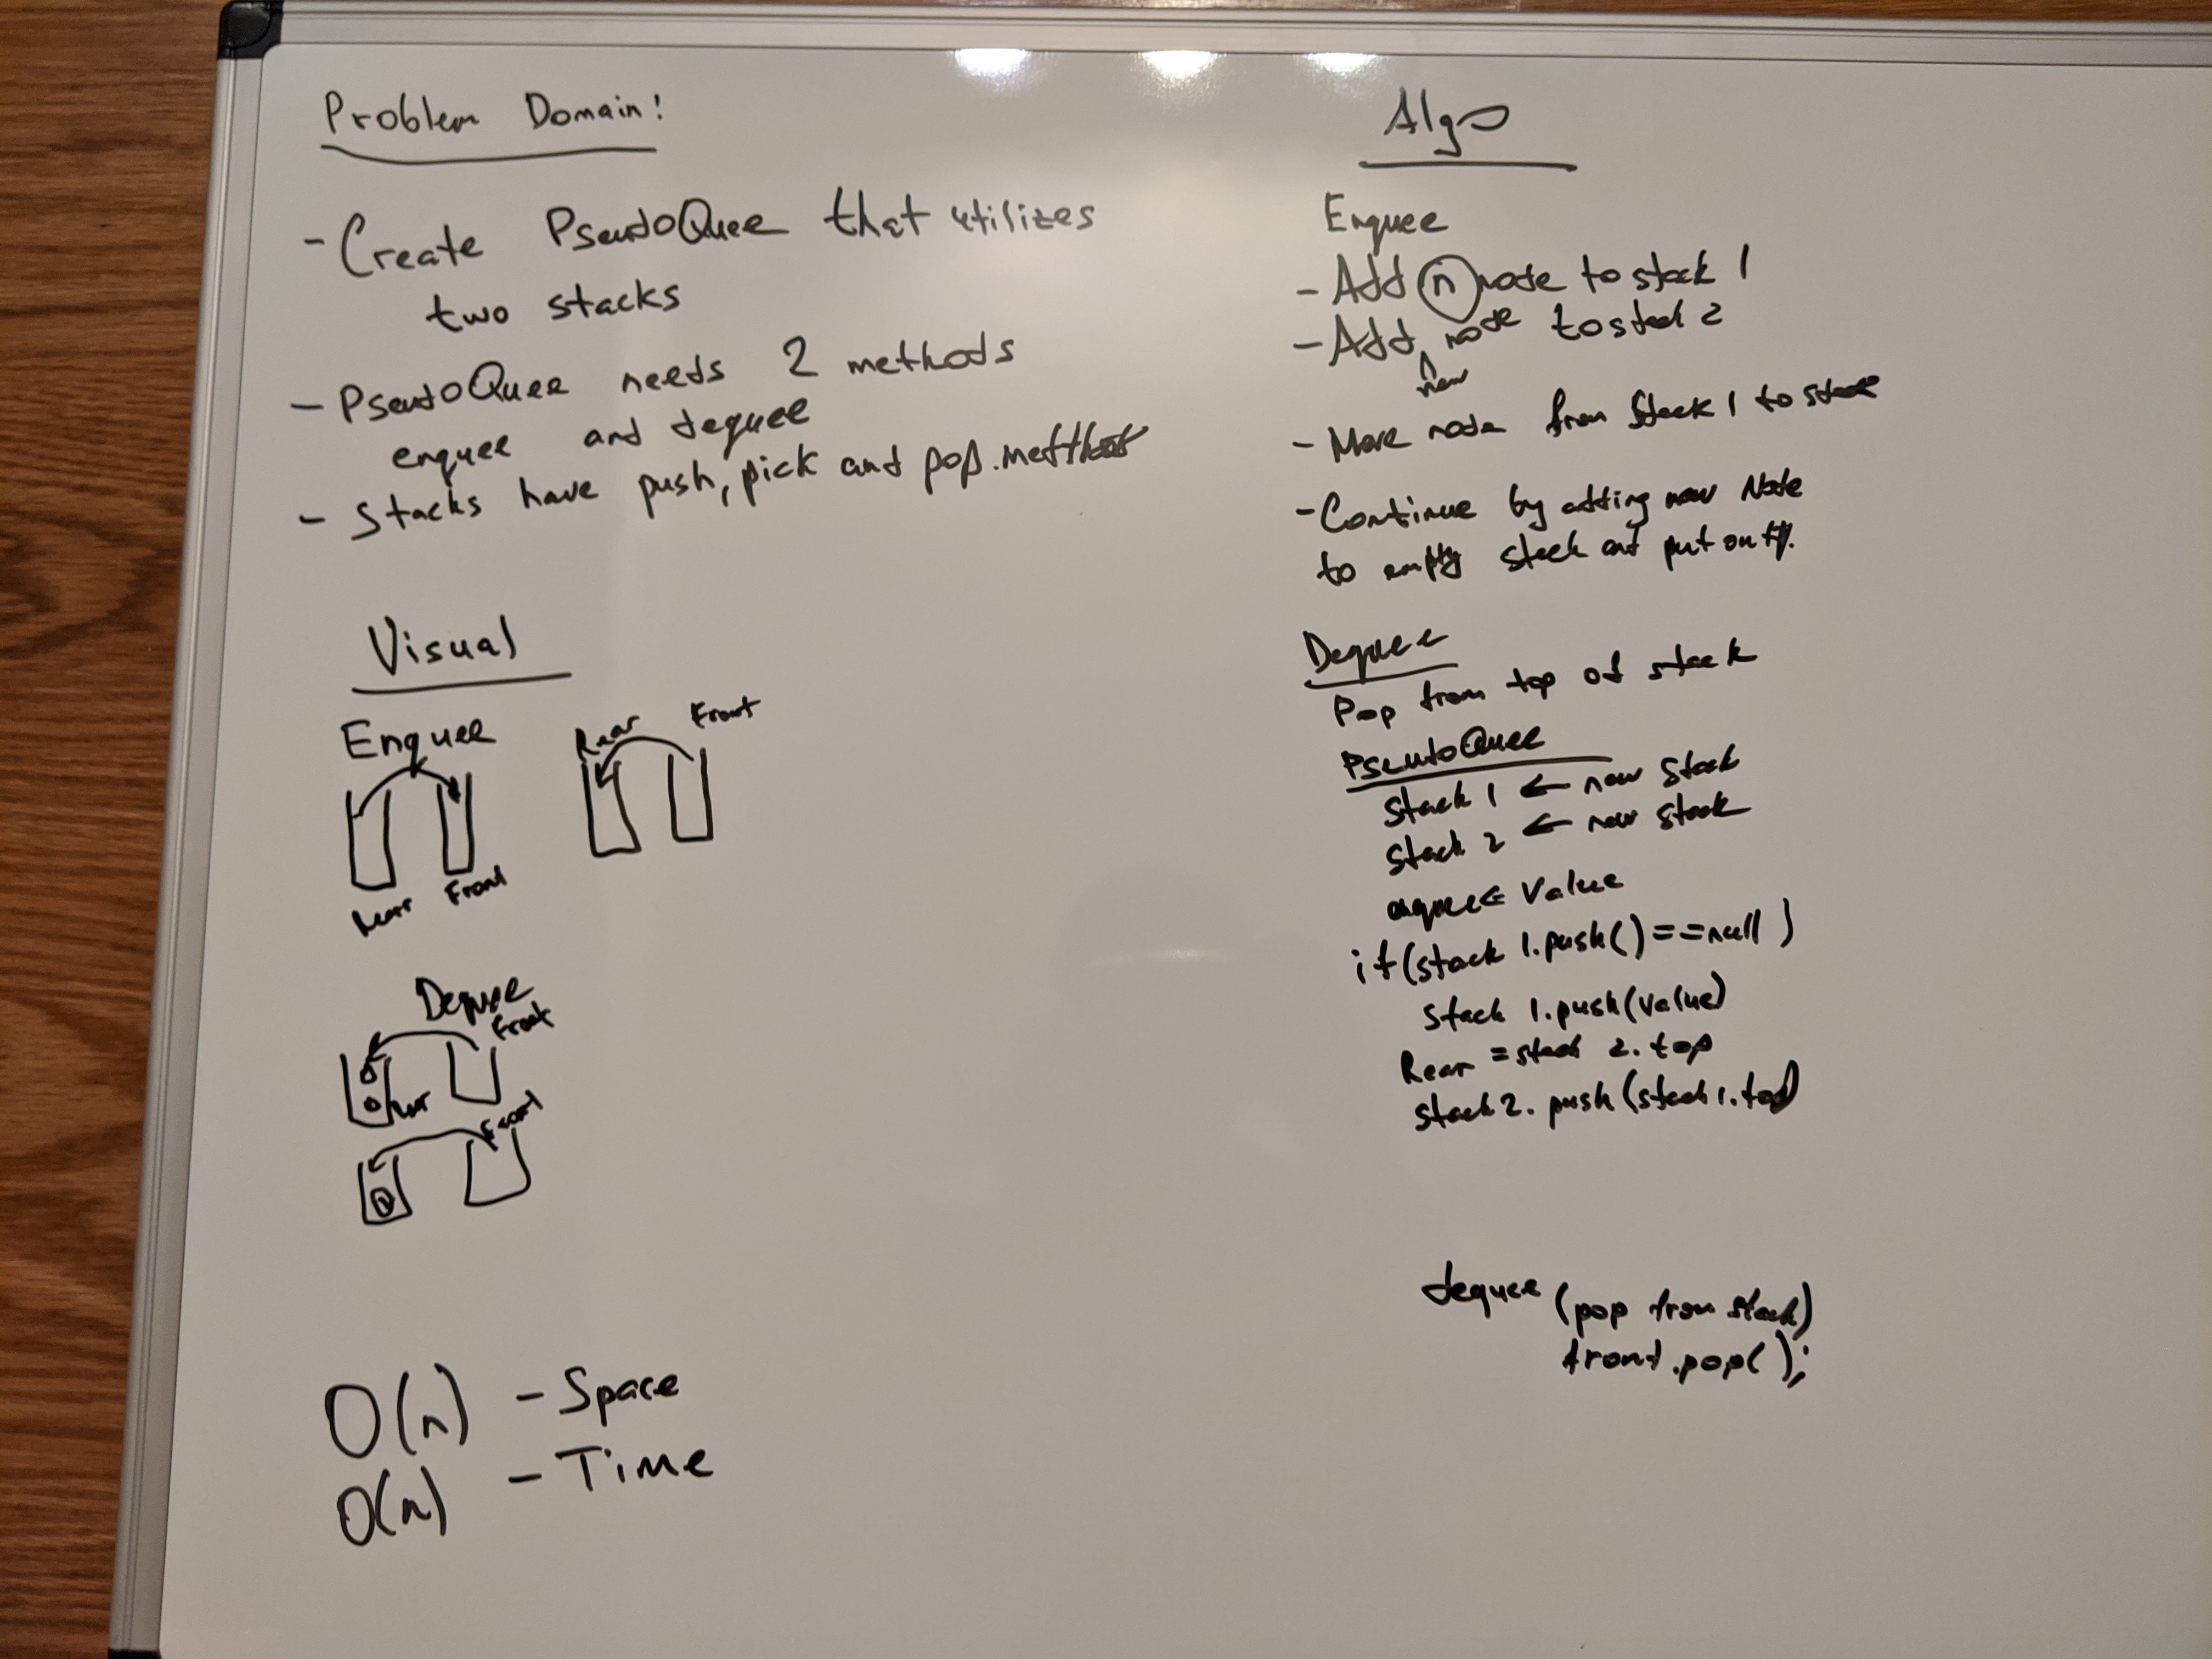 Problem Domain!
- Create PseudoQuee that utilizes
two stacks
- PseudoQuee needs 2 methods
enquee and dequee
- Stacks have push, pick and pop.
Visual
Enquee
Rear Front
Rear Front
Dequee
Front
Front
O(n) - Space
O(n) - Time
Algo
Enquee
- Add n node to stack 1
- Add node to stack 2
new
- Move node from Stack 1 to
- Continue by adding new Node
to empty stack and put on
Dequee
Pop from top of stack
PseutoQuee
Stack 1 ← new Stack
Stack 2 ← new stack
enquee ← Value
if(stack 1.push()==null )
Stack 1.push(value)
Rear = stack 2. top
stack 2. push (stack 1.top)
dequee (pop from stack)
front.pop( );